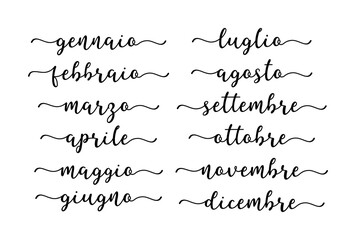 gennaio
febbraio
marzo
aprile
maggio
giugno
luglio
agosto
settembre
ottobre
novembre
dicembre